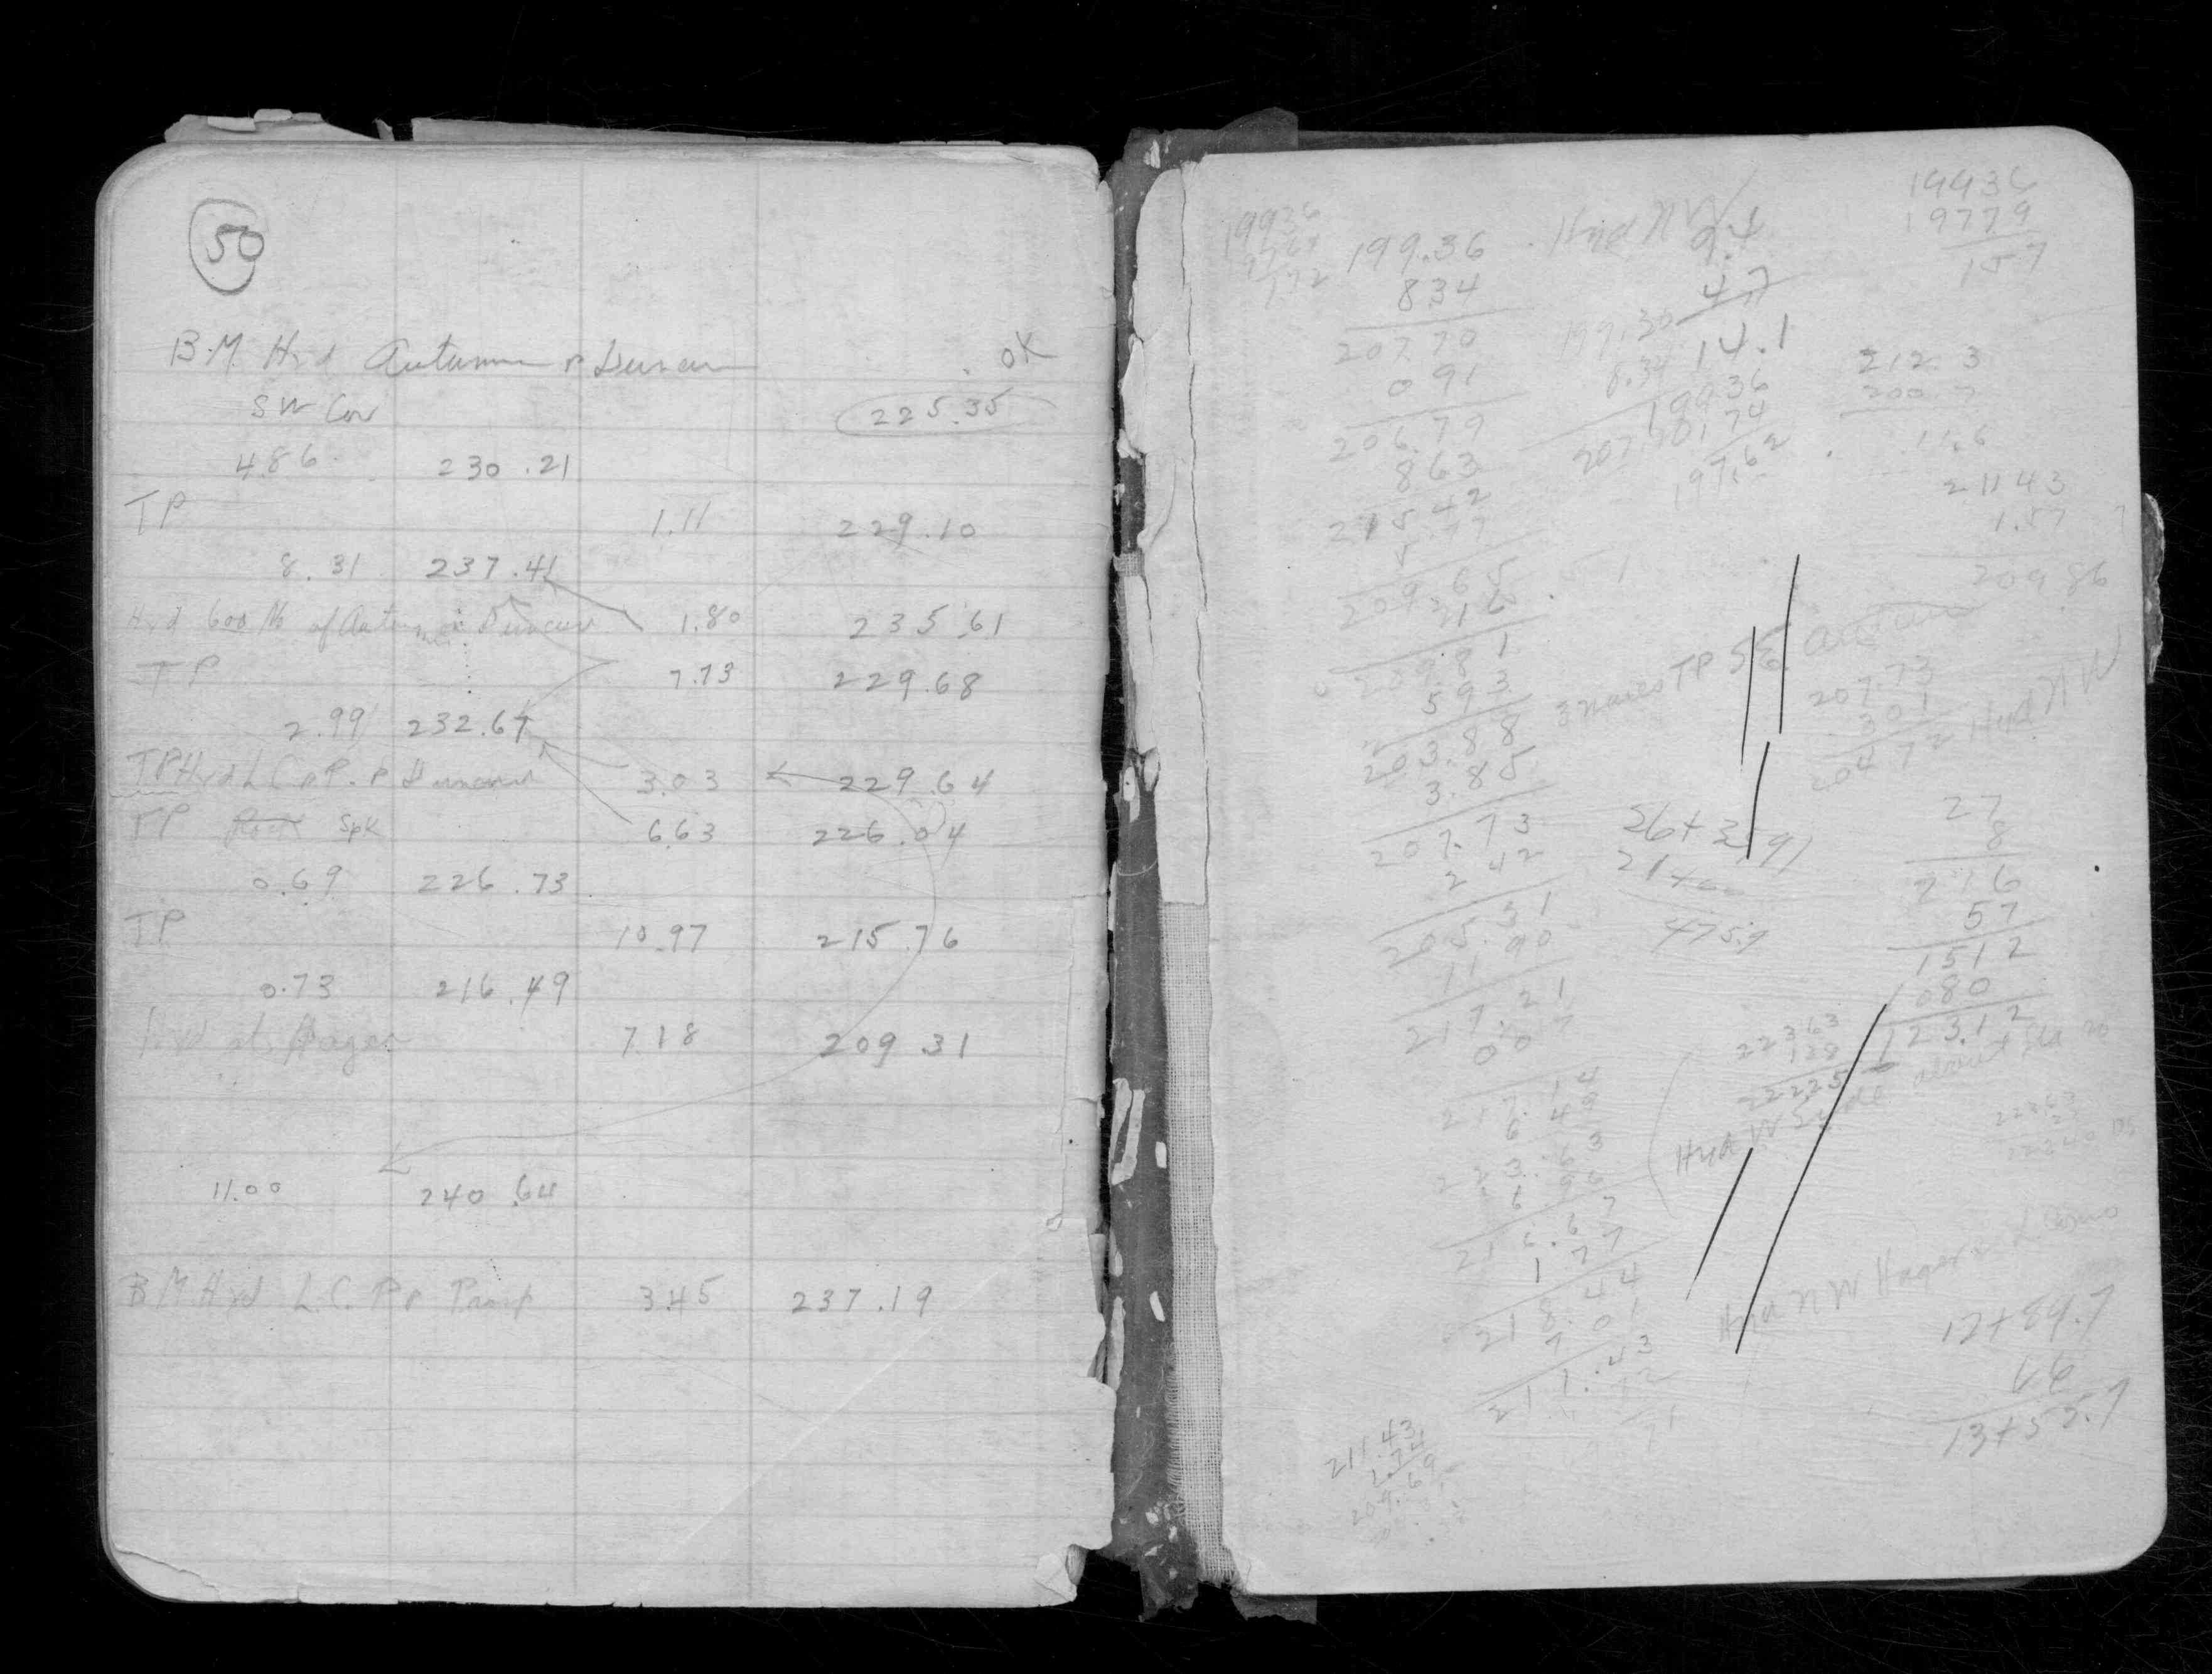 50
B.M. Hyd Autumn & Duncan OK
SW Cor 225.35
4.86 230.21
TP 1.11 229.10
8.31 237.41
Hyd 600 N. of Autumn & Duncan 1.80 235.61
TP 7.73 229.68
2.99 232.67
TP Hyd L.C. & P. & Duncan 3.03 229.64
TP Spk 6.63 226.04
0.69 226.73
TP 10.97 215.76
0.73 216.49
Hyd at Hager 7.18 209.31
11.00 240.64
B.M. Hyd L.C. P & 3.45 237.19
199.36
834
207.70
091
206.79
863
215.42
5.77
209.65
216
209.81
593
203.88
3.85
207.73
242
205.31
11 90
217.21
007
217.14
649
223.63
696
216.67
1.77
218.44
701
211.43
211.43
1.74
209.69
19936
172
Hyd NW
9.4
4.7
14.1
199.36
8.34
207.70
19936
1.74
197.62
19936
19779
157
212.3
200.7
11.6
21143
1.57
209.86
TP SE Autumn
207.73
301
204.72 Hyd NW
21+00
475.9
27
8
216
57
1512
080
123.12
22363
128
22225
Hyd W Side about Sta 20
Hyd NW Hager &
12+89.7
66
13+55.7